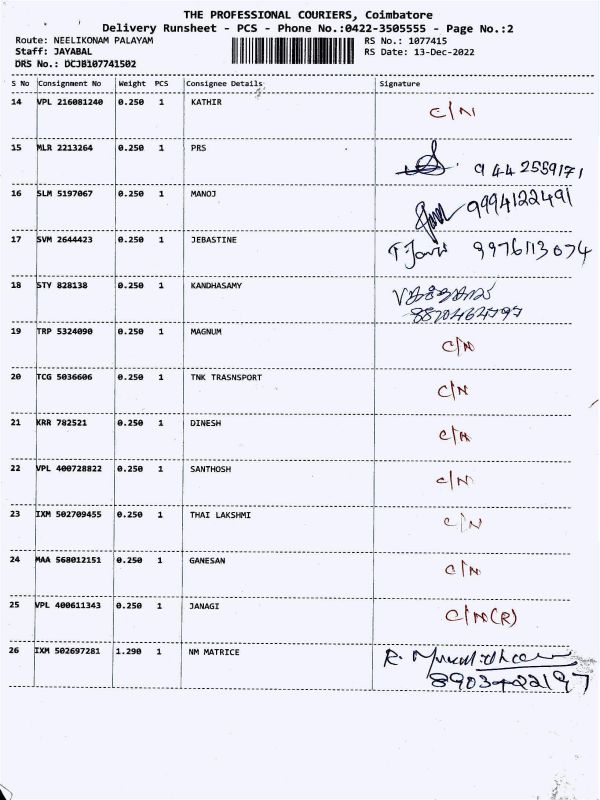 THE PROFESSIONAL COURIERS, Coimbatore
Delivery Runsheet - PCS - Phone No.:0422-3505555 - Page No.:2
Route: NEELIKONAM PALAYAM RS No.: 1077415
Staff: JAYABAL RS Date: 13-Dec-2022
DRS No.: DCJB107741502
S No Consignment No Weight PCS Consignee Details Signature
14 VPL 216081240 0.250 1 KATHIR C/N
15 MLR 2213264 0.250 1 PRS 9442559171
16 SLM 5197067 0.250 1 MANOJ 9994122491
17 SVM 2644423 0.250 1 JEBASTINE 9976113074
18 STY 828138 0.250 1 KANDHASAMY
19 TRP 5324090 0.250 1 MAGNUM C/N
20 TCG 5036606 0.250 1 TNK TRASNSPORT C/N
21 KRR 782521 0.250 1 DINESH C/N
22 VPL 400728822 0.250 1 SANTHOSH C/N
23 IXM 502709455 0.250 1 THAI LAKSHMI C/N
24 MAA 568012151 0.250 1 GANESAN C/N
25 VPL 400611343 0.250 1 JANAGI C/N(R)
26 IXM 502697281 1.290 1 NM MATRICE R.